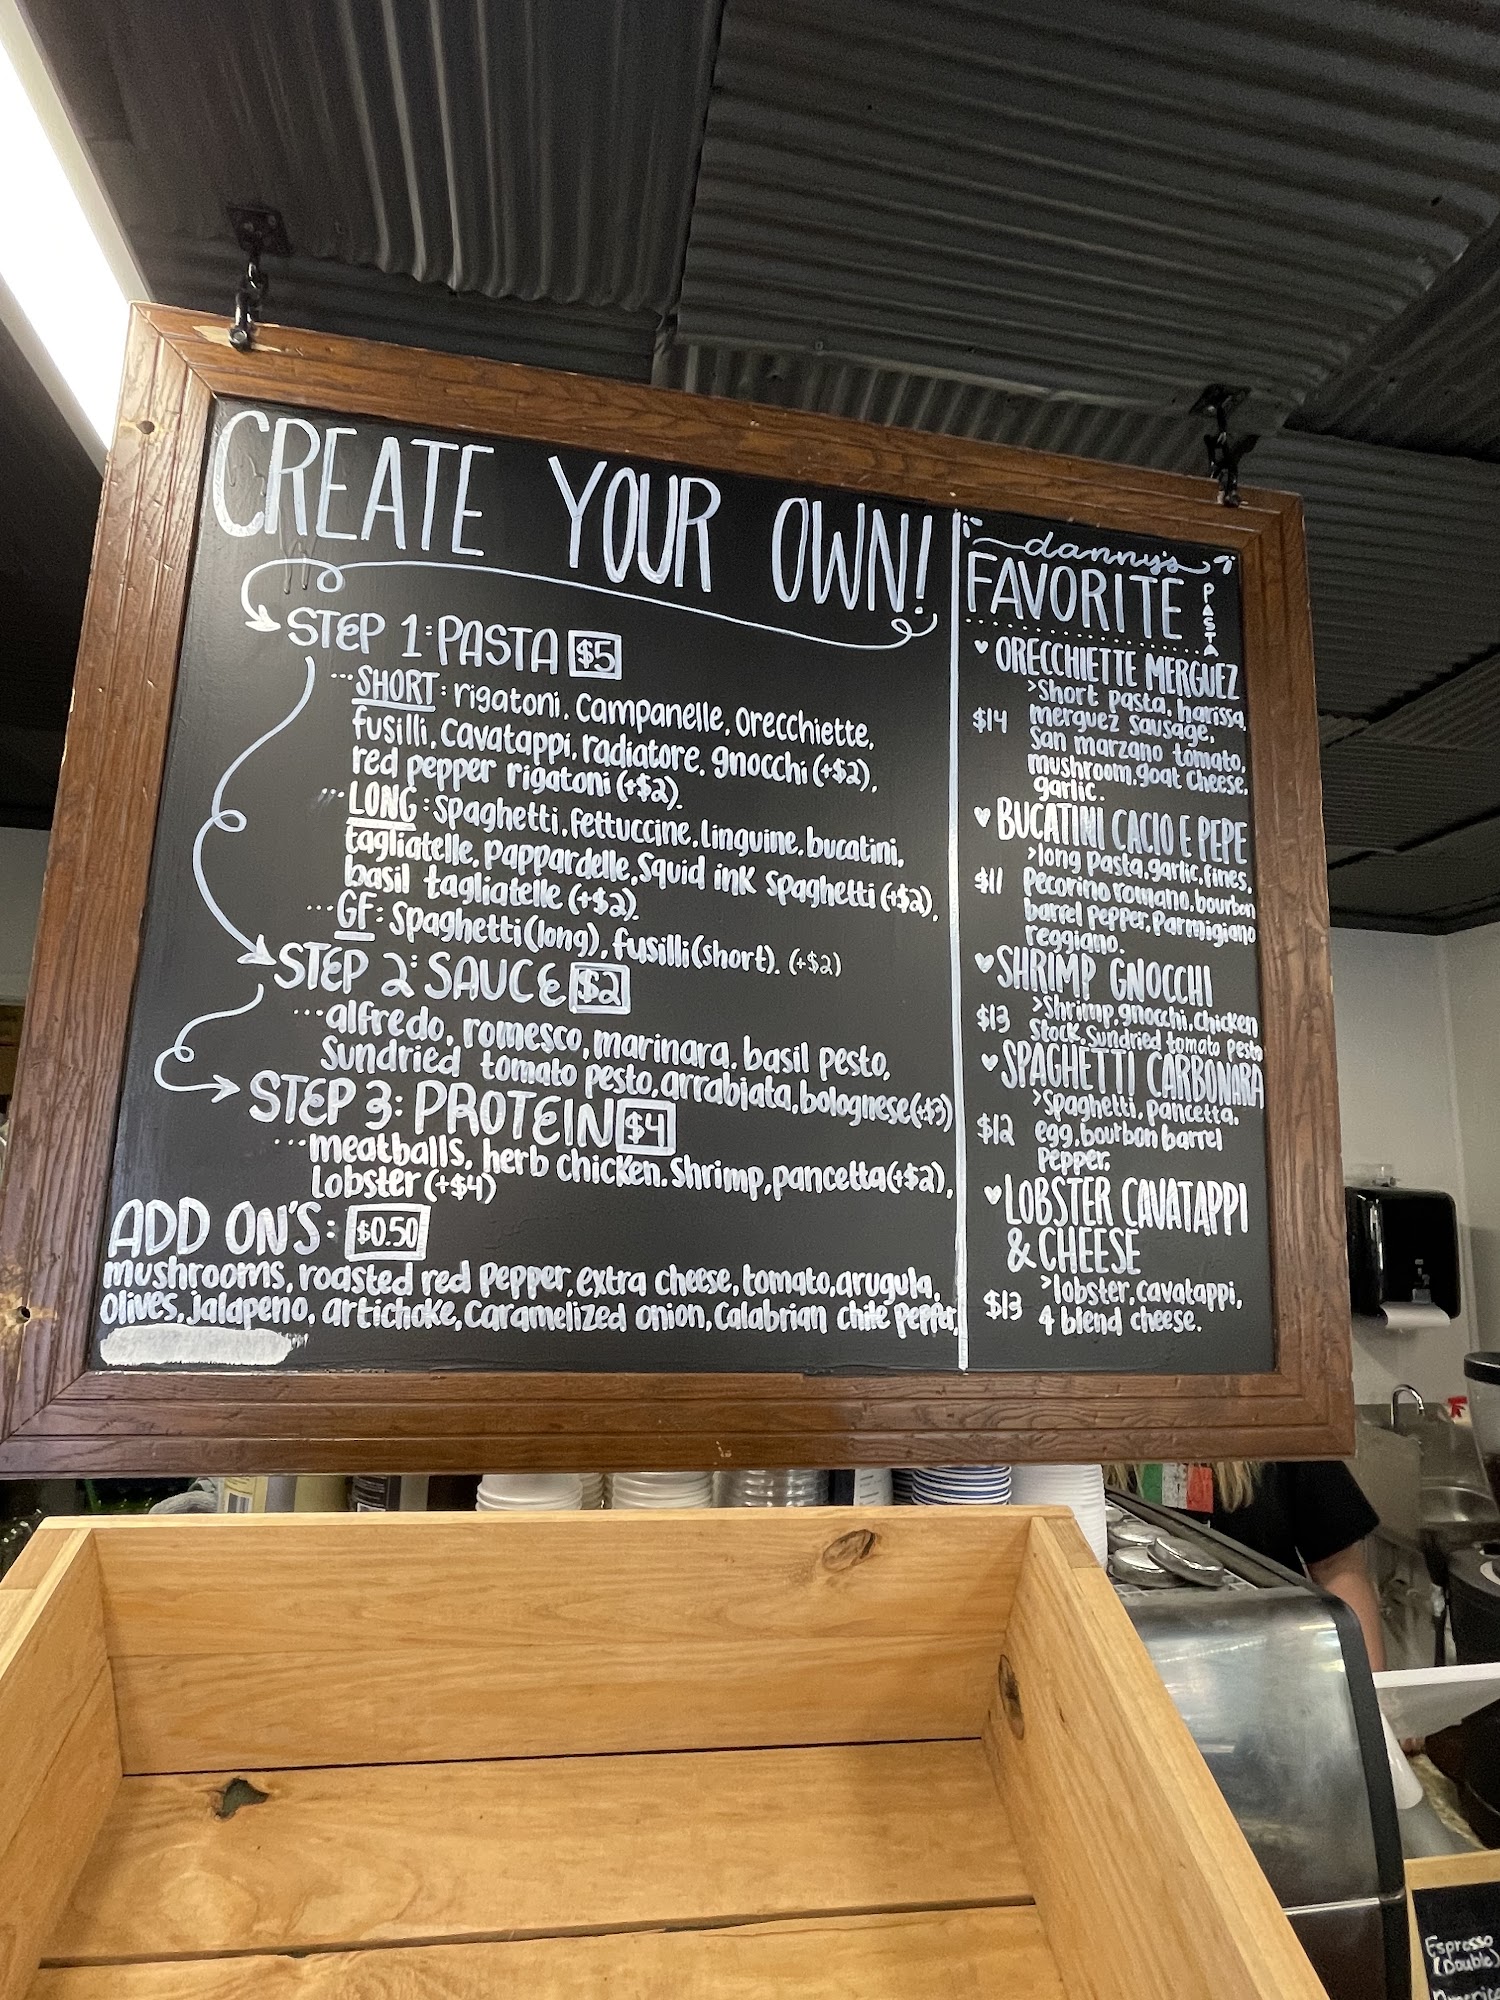 CREATE YOUR OWN!
STEP 1: PASTA $5
...SHORT: rigatoni, Campanelle, Orecchiette,
fusilli, Cavatappi, radiatore, gnocchi (+$2),
red pepper rigatoni (+$2).
...LONG: Spaghetti, fettuccine, linguine, bucatini,
tagliatelle, pappardelle, Squid ink Spaghetti (+$2),
basil tagliatelle (+$2).
...GF: Spaghetti (long), fusilli (short). (+$2)
STEP 2: SAUCE $2
...alfredo, romesco, marinara, basil pesto,
Sundried tomato pesto, arrabiata, bolognese (+$3)
STEP 3: PROTEIN $4
...meatballs, herb chicken, Shrimp, pancetta (+$2),
Lobster (+$4)
ADD ON'S: $0.50
mushrooms, roasted red pepper, extra cheese, tomato, arugula,
Olives, jalapeno, artichoke, Caramelized onion, Calabrian chile pepper,
danny's
FAVORITE
PASTA
ORECCHIETTE MERGUEZ
>Short pasta, harissa,
$14 merguez sausage,
San marzano tomato,
mushroom, goat cheese,
garlic.
BUCATINI CACIO E PEPE
>long pasta, garlic, fines,
$11 Pecorino romano, bourbon
barrel pepper, Parmigiano
reggiano.
SHRIMP GNOCCHI
>Shrimp, gnocchi, chicken
$13 Stock, Sundried tomato pesto
SPAGHETTI CARBONARA
>Spaghetti, pancetta,
$12 egg, bourbon barrel
pepper.
LOBSTER CAVATAPPI
& CHEESE
>lobster, cavatappi,
$13 4 blend cheese.
Espresso
(Double)